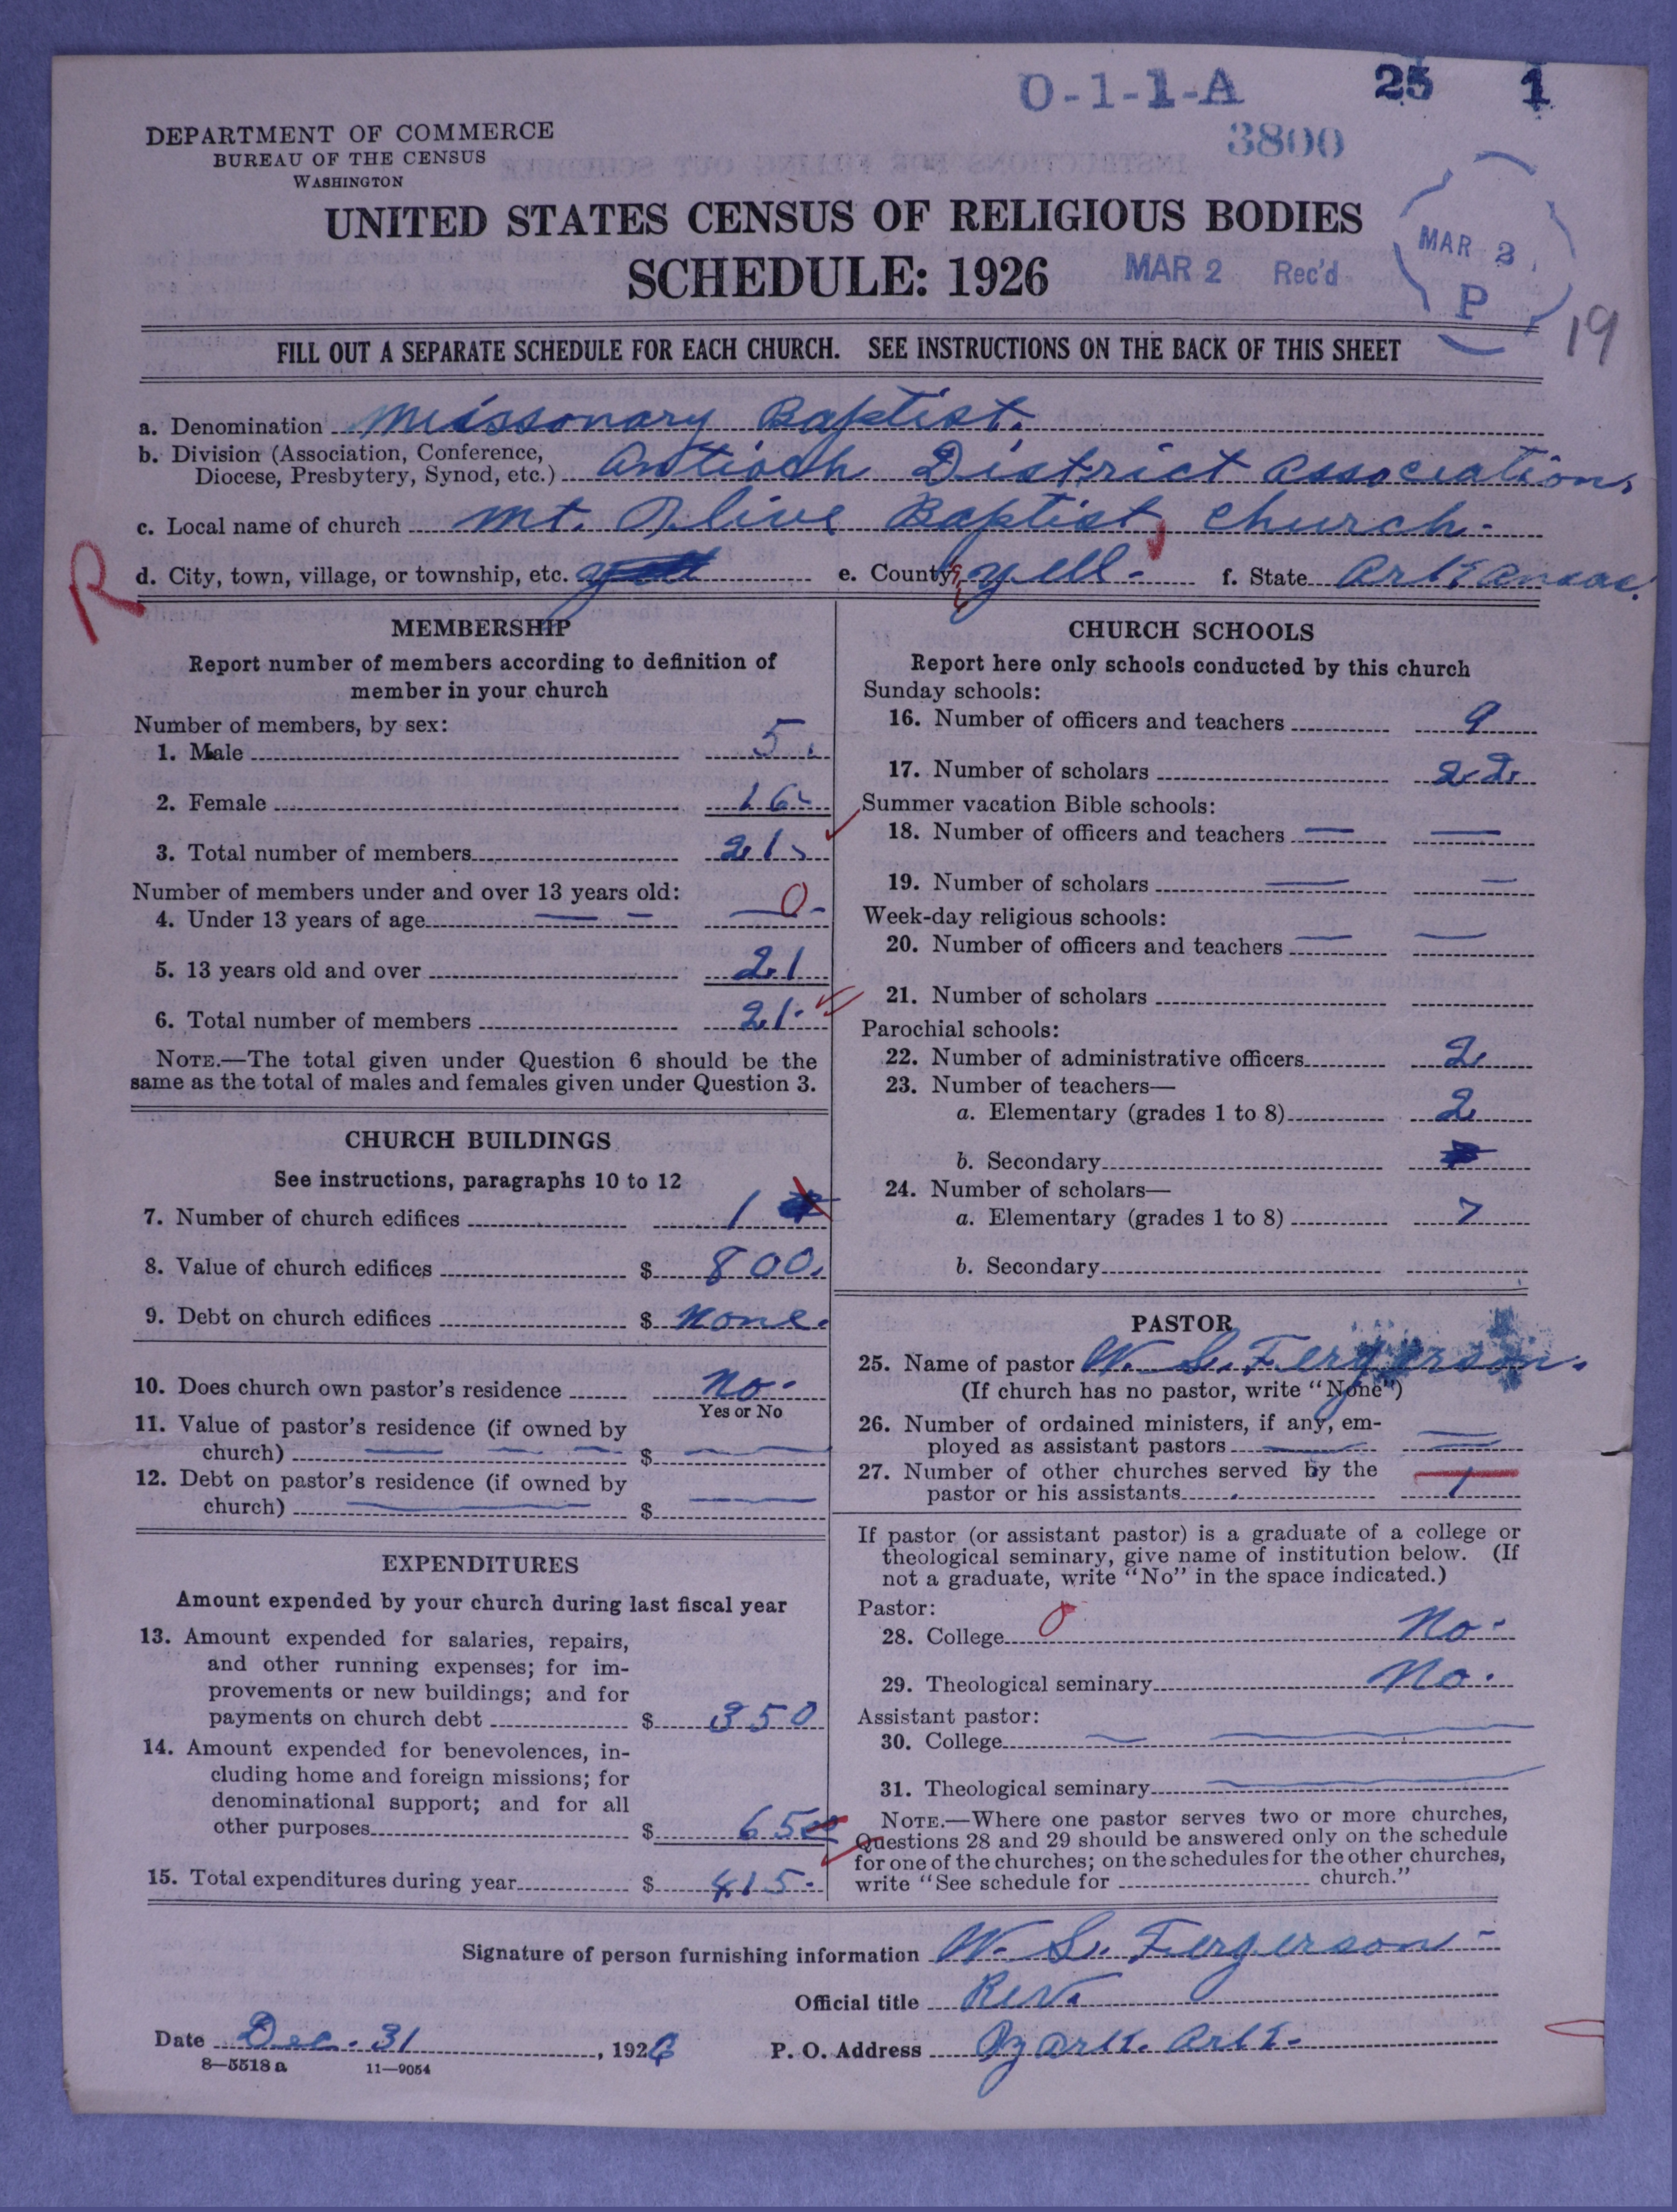 O-1-1-A 25 1
3800
DEPARTMENT OF COMMERCE
BUREAU OF THE CENSUS
WASHINGTON
UNITED STATES CENSUS OF RELIGIOUS BODIES
SCHEDULE: 1926
MAR 2 Rec'd
MAR 2
P
19
FILL OUT A SEPARATE SCHEDULE FOR EACH CHURCH. SEE INSTRUCTIONS ON THE BACK OF THIS SHEET
a. Denomination Missonary Baptist.
b. Division (Association, Conference,
Diocese, Presbytery, Synod, etc.) Antioch District Association.
c. Local name of church Mt. Olive Baptist church-
R
d. City, town, village, or township, etc. e. County Yell- f. State Arkansas.
MEMBERSHIP
Report number of members according to definition of
member in your church
Number of members, by sex:
1. Male 5.
2. Female 16
3. Total number of members 21
Number of members under and over 13 years old:
4. Under 13 years of age — — 0-
5. 13 years old and over 21
6. Total number of members 21.
NOTE.—The total given under Question 6 should be the
same as the total of males and females given under Question 3.
CHURCH BUILDINGS
See instructions, paragraphs 10 to 12
7. Number of church edifices 1
8. Value of church edifices $ 800.
9. Debt on church edifices $ None.
10. Does church own pastor's residence No-
Yes or No
11. Value of pastor's residence (if owned by
church) — — — $ — —
12. Debt on pastor's residence (if owned by
church) — $ —
EXPENDITURES
Amount expended by your church during last fiscal year
13. Amount expended for salaries, repairs,
and other running expenses; for im-
provements or new buildings; and for
payments on church debt $ 350
14. Amount expended for benevolences, in-
cluding home and foreign missions; for
denominational support; and for all
other purposes $ 65
15. Total expenditures during year $ 415-
CHURCH SCHOOLS
Report here only schools conducted by this church
Sunday schools:
16. Number of officers and teachers 9
17. Number of scholars 22.
Summer vacation Bible schools:
18. Number of officers and teachers — —
19. Number of scholars — —
Week-day religious schools:
20. Number of officers and teachers — —
21. Number of scholars
Parochial schools:
22. Number of administrative officers 2
23. Number of teachers—
a. Elementary (grades 1 to 8) 2
b. Secondary
24. Number of scholars—
a. Elementary (grades 1 to 8) 7
b. Secondary
PASTOR
25. Name of pastor W. S. Fergerson.
(If church has no pastor, write "None")
26. Number of ordained ministers, if any, em-
ployed as assistant pastors — —
27. Number of other churches served by the
pastor or his assistants 1
If pastor (or assistant pastor) is a graduate of a college or
theological seminary, give name of institution below. (If
not a graduate, write "No" in the space indicated.)
Pastor:
28. College 0 No-
29. Theological seminary No.
Assistant pastor:
30. College — —
31. Theological seminary —
NOTE.—Where one pastor serves two or more churches,
Questions 28 and 29 should be answered only on the schedule
for one of the churches; on the schedules for the other churches,
write "See schedule for church."
Signature of person furnishing information W. S. Fergerson-
Official title Rev.
Date Dec. 31, 1926 P. O. Address Ozark. Ark-
8—5518 a 11—9054